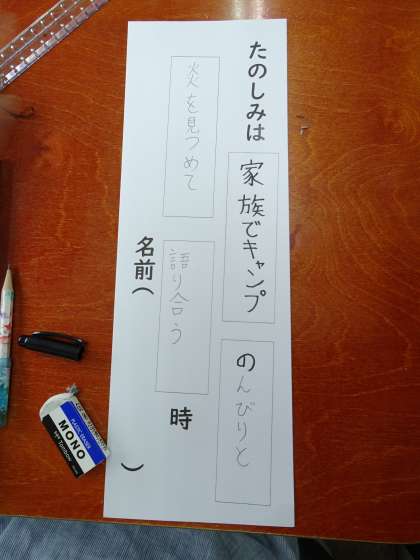 たのしみは
家族でキャンプ
のんびりと
炎を見つめて
語り合う
時
名前( )
MONO
PLASTIC ERASER
Tombow